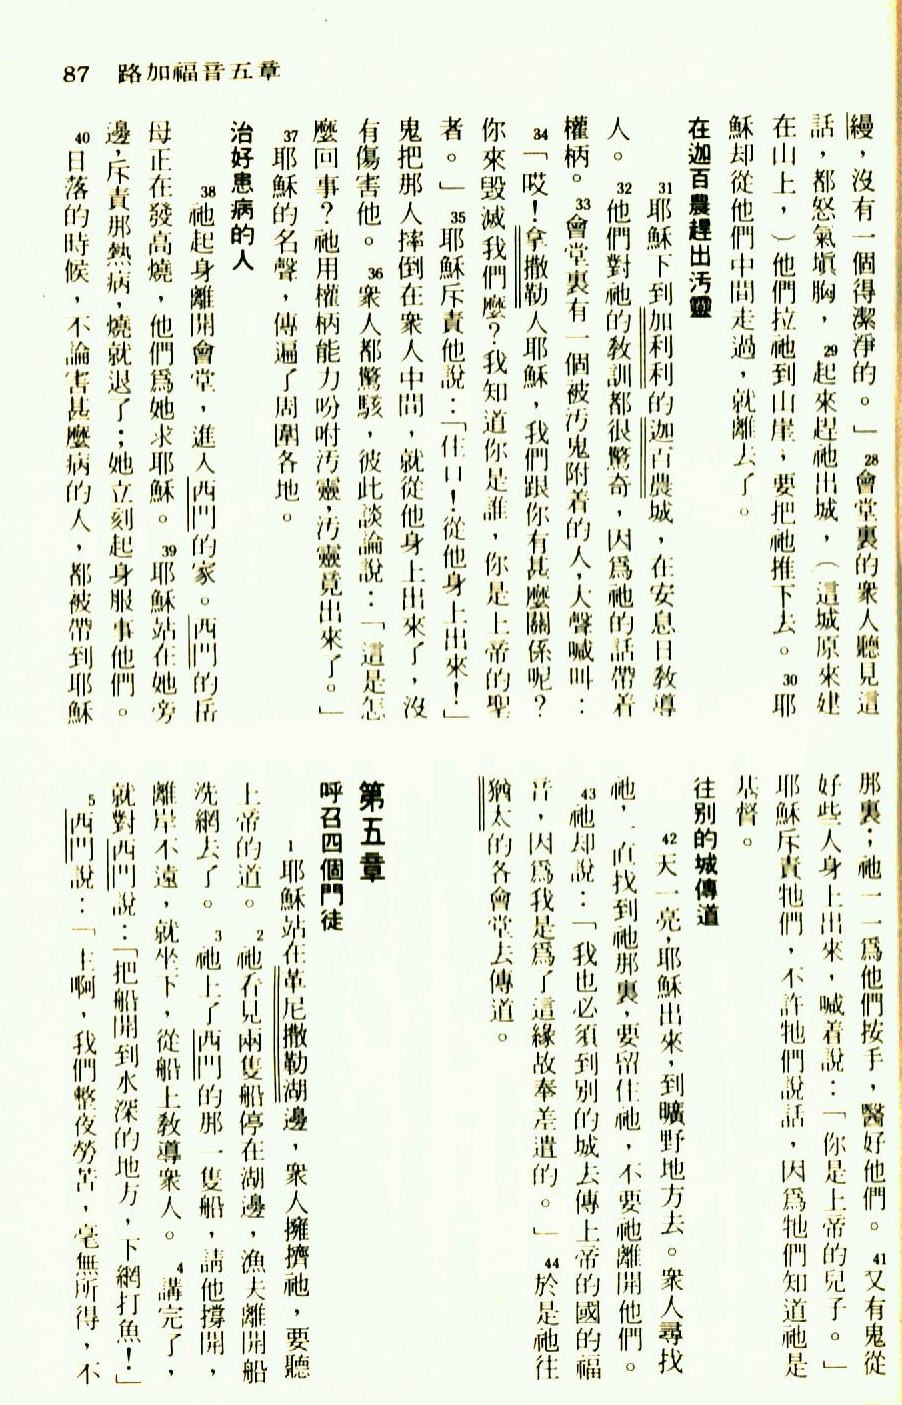 87 路加福音五章
縵，沒有一個得潔淨的。」28會堂裏的衆人聽見這
話，都怒氣塡胸，29起來趕祂出城，（這城原來建
在山上，）他們拉祂到山崖，要把祂推下去。30耶
穌却從他們中間走過，就離去了。
在迦百農趕出汚靈
31耶穌下到加利利的迦百農城，在安息日敎導
人。32他們對祂的敎訓都很驚奇，因爲祂的話帶着
權柄。33會堂裏有一個被汚鬼附着的人，大聲喊叫：
34「哎！拿撒勒人耶穌，我們跟你有甚麼關係呢？
你來毀滅我們麼？我知道你是誰，你是上帝的聖
者。」35耶穌斥責他說：「住口！從他身上出來！」
鬼把那人摔倒在衆人中間，就從他身上出來了，沒
有傷害他。36衆人都驚駭，彼此談論說：「這是怎
麼回事？祂用權柄能力吩咐汚靈，汚靈竟出來了。」
37耶穌的名聲，傳遍了周圍各地。
治好患病的人
38祂起身離開會堂，進入西門的家。西門的岳
母正在發高燒，他們爲她求耶穌。39耶穌站在她旁
邊，斥責那熱病，燒就退了；她立刻起身服事他們。
40日落的時候，不論害甚麼病的人，都被帶到耶穌
那裏；祂一一爲他們按手，醫好他們。41又有鬼從
好些人身上出來，喊着說：「你是上帝的兒子。」
耶穌斥責牠們，不許牠們說話，因爲牠們知道祂是
基督。
往别的城傳道
42天一亮，耶穌出來，到曠野地方去。衆人尋找
祂，一直找到祂那裏，要留住祂，不要祂離開他們。
43祂却說：「我也必須到别的城去傳上帝的國的福
音，因爲我是爲了這緣故奉差遣的。」44於是祂往
猶太的各會堂去傳道。
第五章
呼召四個門徒
1耶穌站在革尼撒勒湖邊，衆人擁擠祂，要聽
上帝的道。2祂看見兩隻船停在湖邊，漁夫離開船
洗網去了。3祂上了西門的那一隻船，請他撐開，
離岸不遠，就坐下，從船上敎導衆人。4講完了，
就對西門說：「把船開到水深的地方，下網打魚！」
5西門說：「主啊，我們整夜勞苦，毫無所得，不